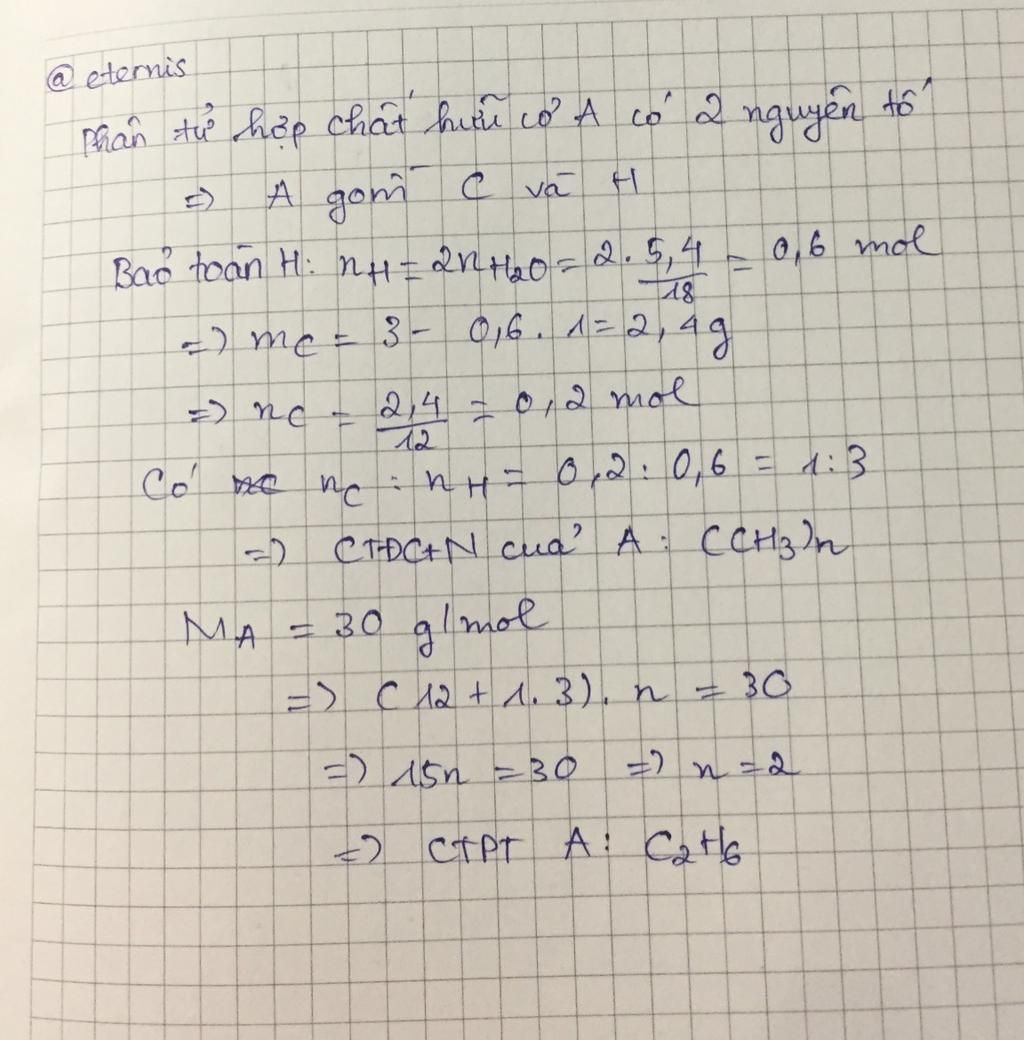 @ eternis
Phân tử hợp chất hữu cơ A có 2 nguyên tố
=> A gồm C và H
Bảo toàn H: nH = 2nH₂O = 2. 5,4/18 = 0,6 mol
=> mC = 3 - 0,6. 1 = 2,4g
=> nC = 2,4/12 = 0,2 mol
Có nC : nH = 0,2 : 0,6 = 1:3
=> CTĐGN của A: (CH₃)n
MA = 30 g/mol
=> (12 + 1. 3). n = 30
=> 15n = 30 => n = 2
=> CTPT A: C₂H₆